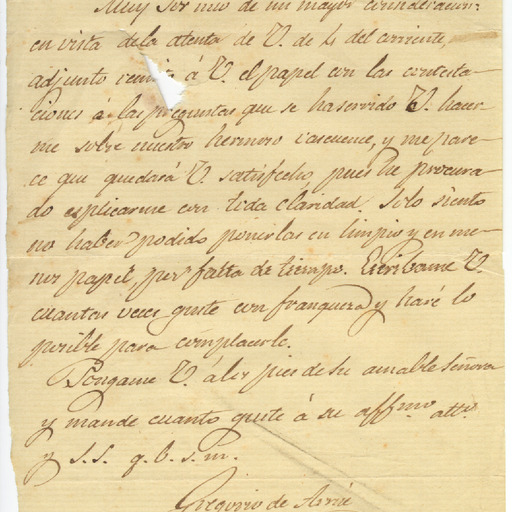 Muy Sor mio de mi mayor consideracion:
en vista dela atenta de V. de 4 del corriente,
adjunto remito á V. el papel con las contesta-
ciones á las preguntas que se ha servido V. hacer
me sobre nuestro hermoso vascuence, y me pare-
ce que quedará V. satisfecho pues he procura-
do esplicarme con toda claridad. Sólo siento
no haber podido ponerlas en limpio y en me-
nos papel, por falta de tiempo. Escribame V.
cuantas veces guste con franqueza y haré lo
posible para complacerle.
Pongame V. á los pies de su amable Señora
y mande cuanto guste á su affmo. atto.
y s.s. q.b.s.m.
Gregorio de Arrúe